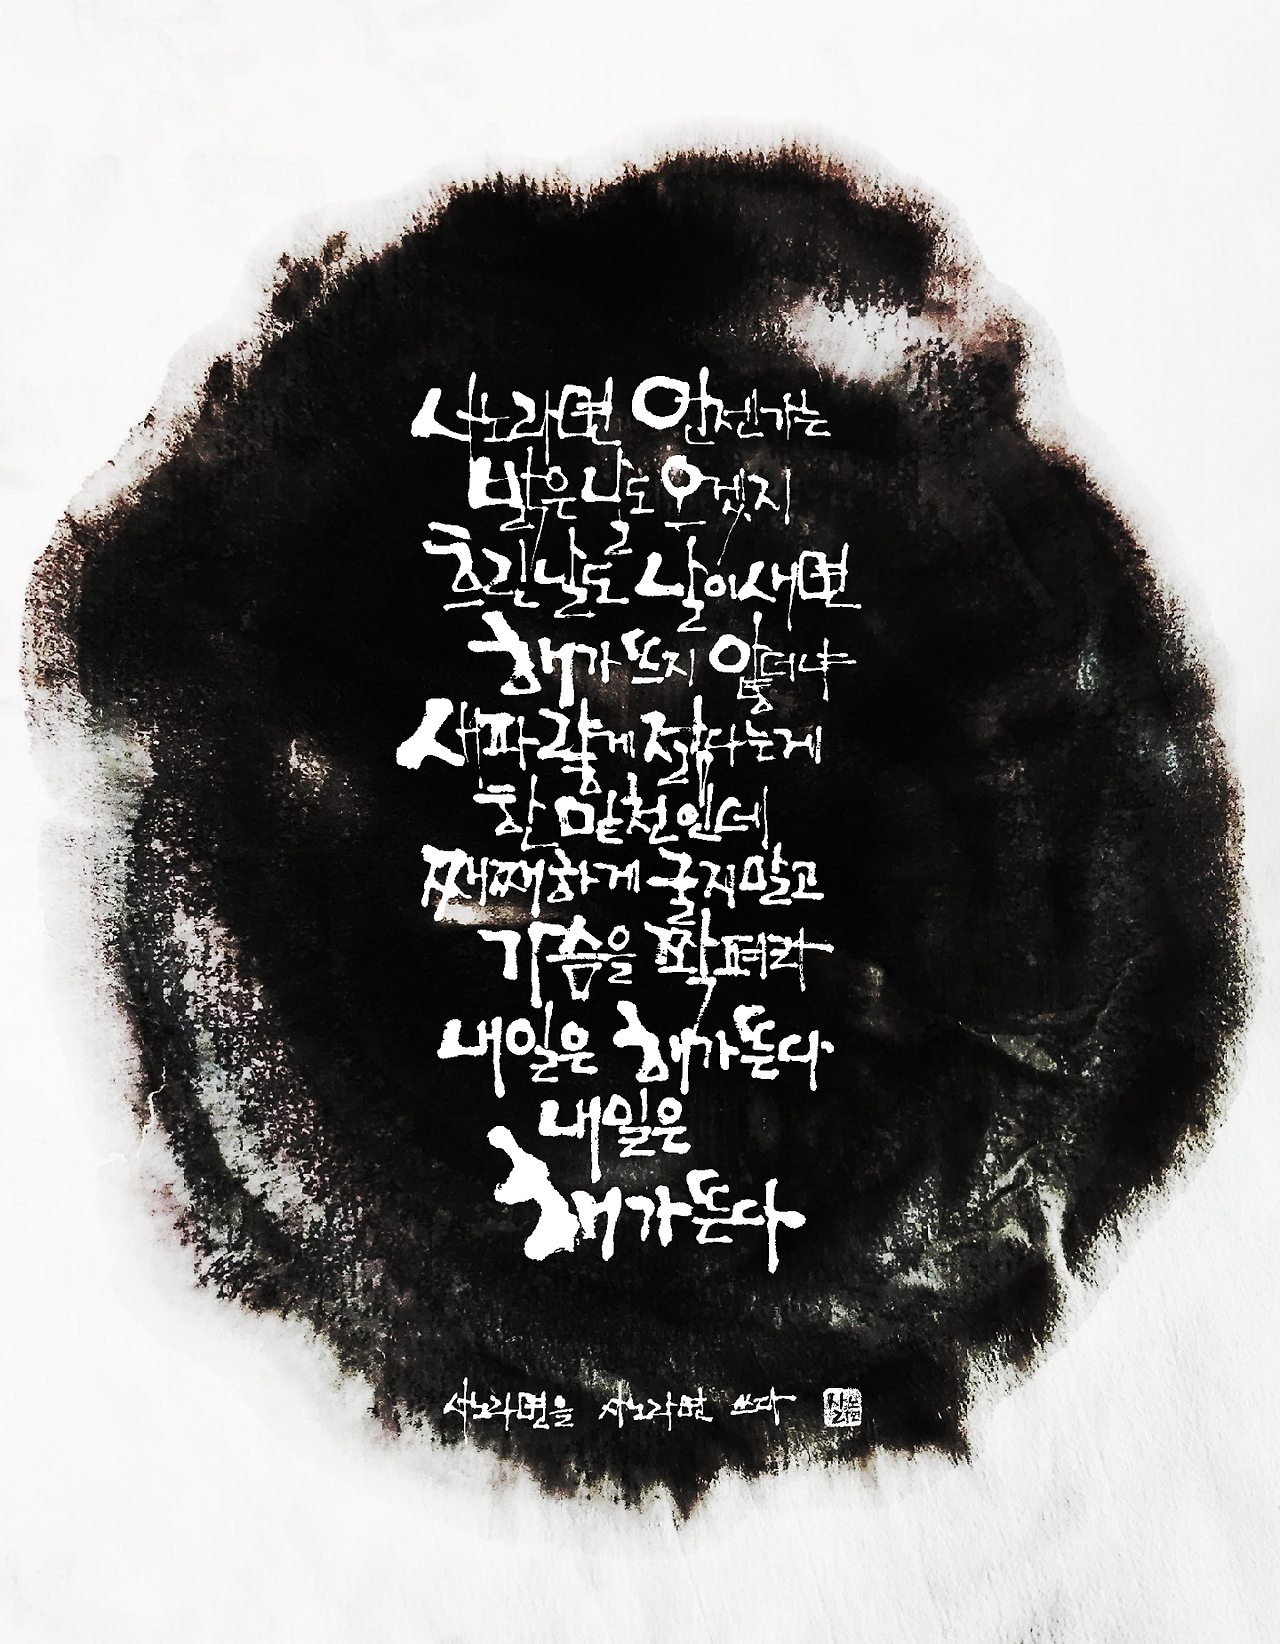 사노라면 언젠가는
밝은 날도 오겠지
흐린 날도 날이 새면
해가 뜨지 않더냐
새파랗게 젊다는게
한 밑천인데
째째하게 굴지말고
가슴을 쫙 펴라
내일은 해가 뜬다
내일은
해가 뜬다
사노라면을 사노라면 쓰다